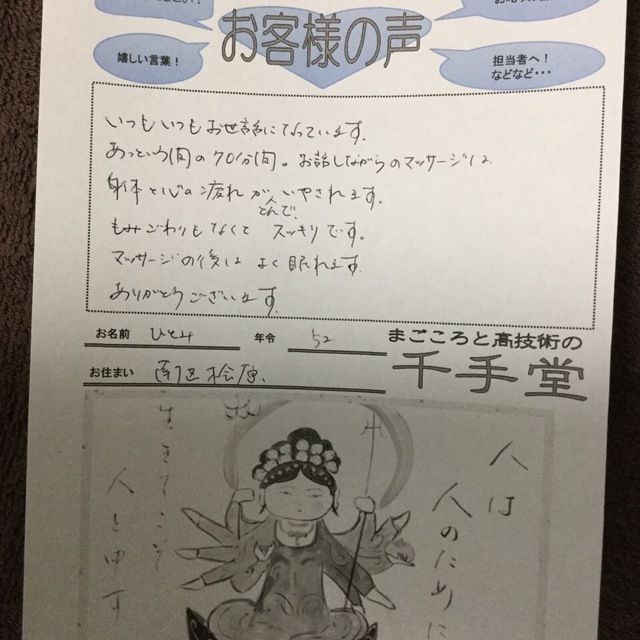 お客様の声
嬉しい言葉！
担当者へ！
などなど・・・
いつもいつもお世話になっています。
あっという間の70分間。お話しながらのマッサージは
身体と心の疲れがとんでいやされます。
もみごわりもなくて スッキリです。
マッサージの後は よく眠れます。
ありがとうございます。
お名前 ひとみ 年令 52
お住まい 南区桧原
まごころと高技術の
千手堂
人は
人のために
生きてこそ
人と申す